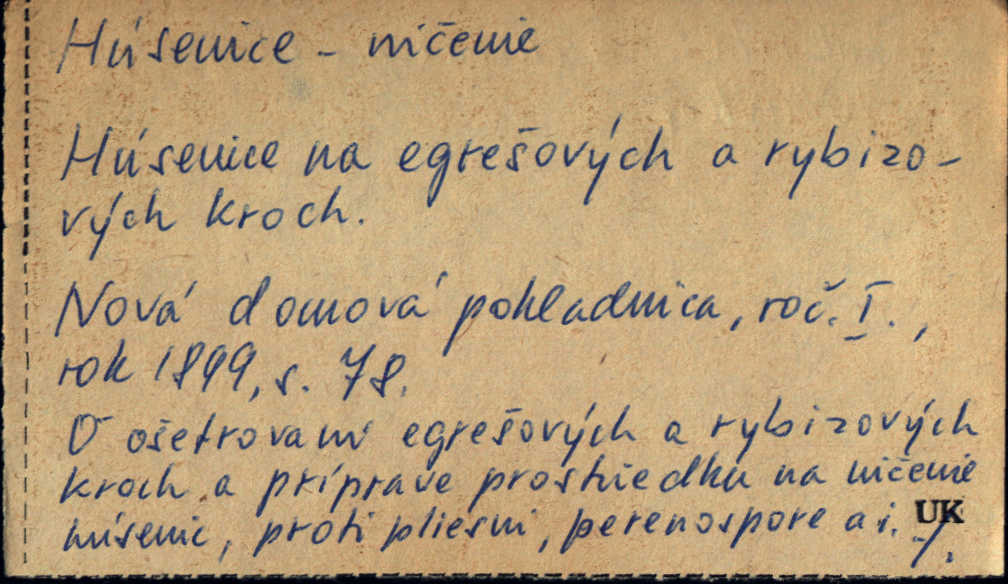 Húsenice - ničenie
Húsenice na egrešových a rybizo-
vých kroch.
Nová domová pokladnica, roč. I.,
rok 1899, s. 78.
O ošetrovaní egrešových a rybizových
kroch a príprave prostriedku na ničenie
húseníc, proti pliesni, perenospore a i.
UK